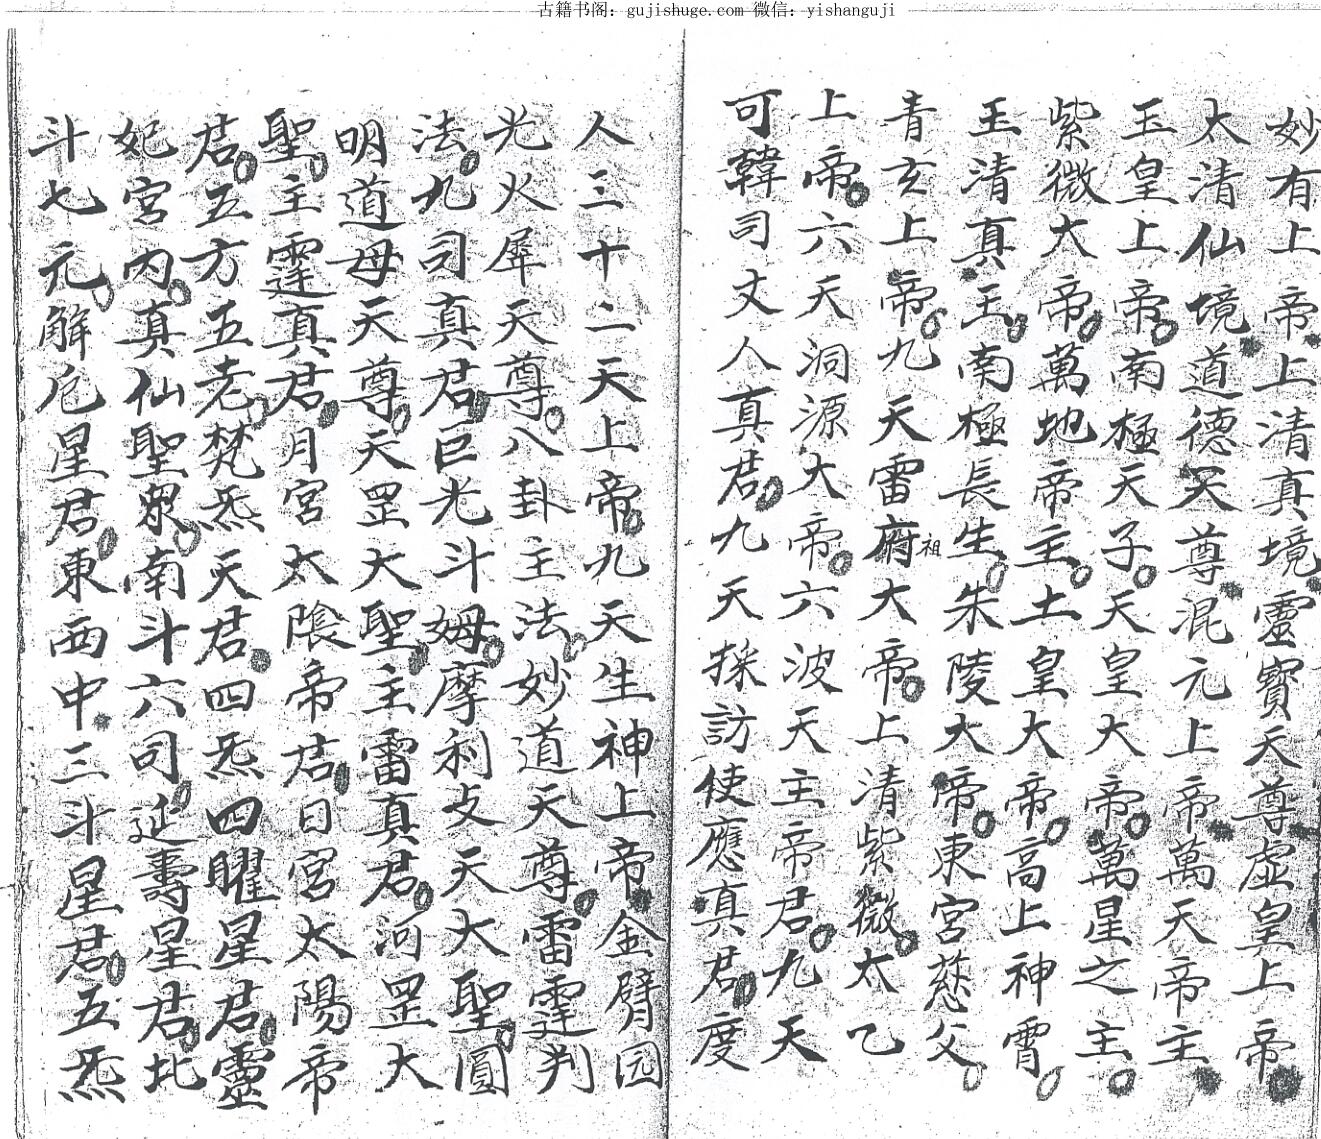 古籍书阁：gujishuge.com 微信：yishanguji
妙有上帝上清真境靈寶天尊虛皇上帝
太清仙境道德天尊混元上帝萬天帝主
玉皇上帝南極天子天皇大帝萬星之主
紫微大帝萬地帝主土皇大帝高上神霄
玉清真王南極長生朱陵大帝東宮慈父
青玄上帝九天雷府祖大帝上清紫微太乙
上帝六天洞源大帝六波天主帝君九天
可韓司丈人真君九天採訪使應真君度
人三十二天上帝九天生神上帝金臂园
光火犀天尊八卦主法妙道天尊雷霆判
法九司真君巨光斗姆摩利攴天大聖圓
明道母天尊天罡大聖主雷真君河罡大
聖主霆真君月宮太陰帝君日宮太陽帝
君五方五老梵炁天君四炁四曜星君靈
妃宮內真仙聖眾南斗六司延壽星君北
斗七元解厄星君東西中三斗星君五炁